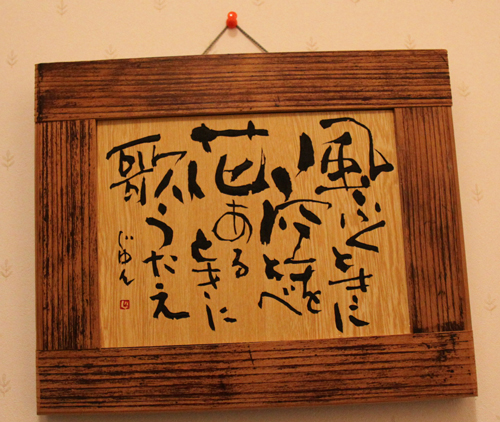 風ふくときに
空をとべ
花ある
ときに
歌うたえ
じゅん